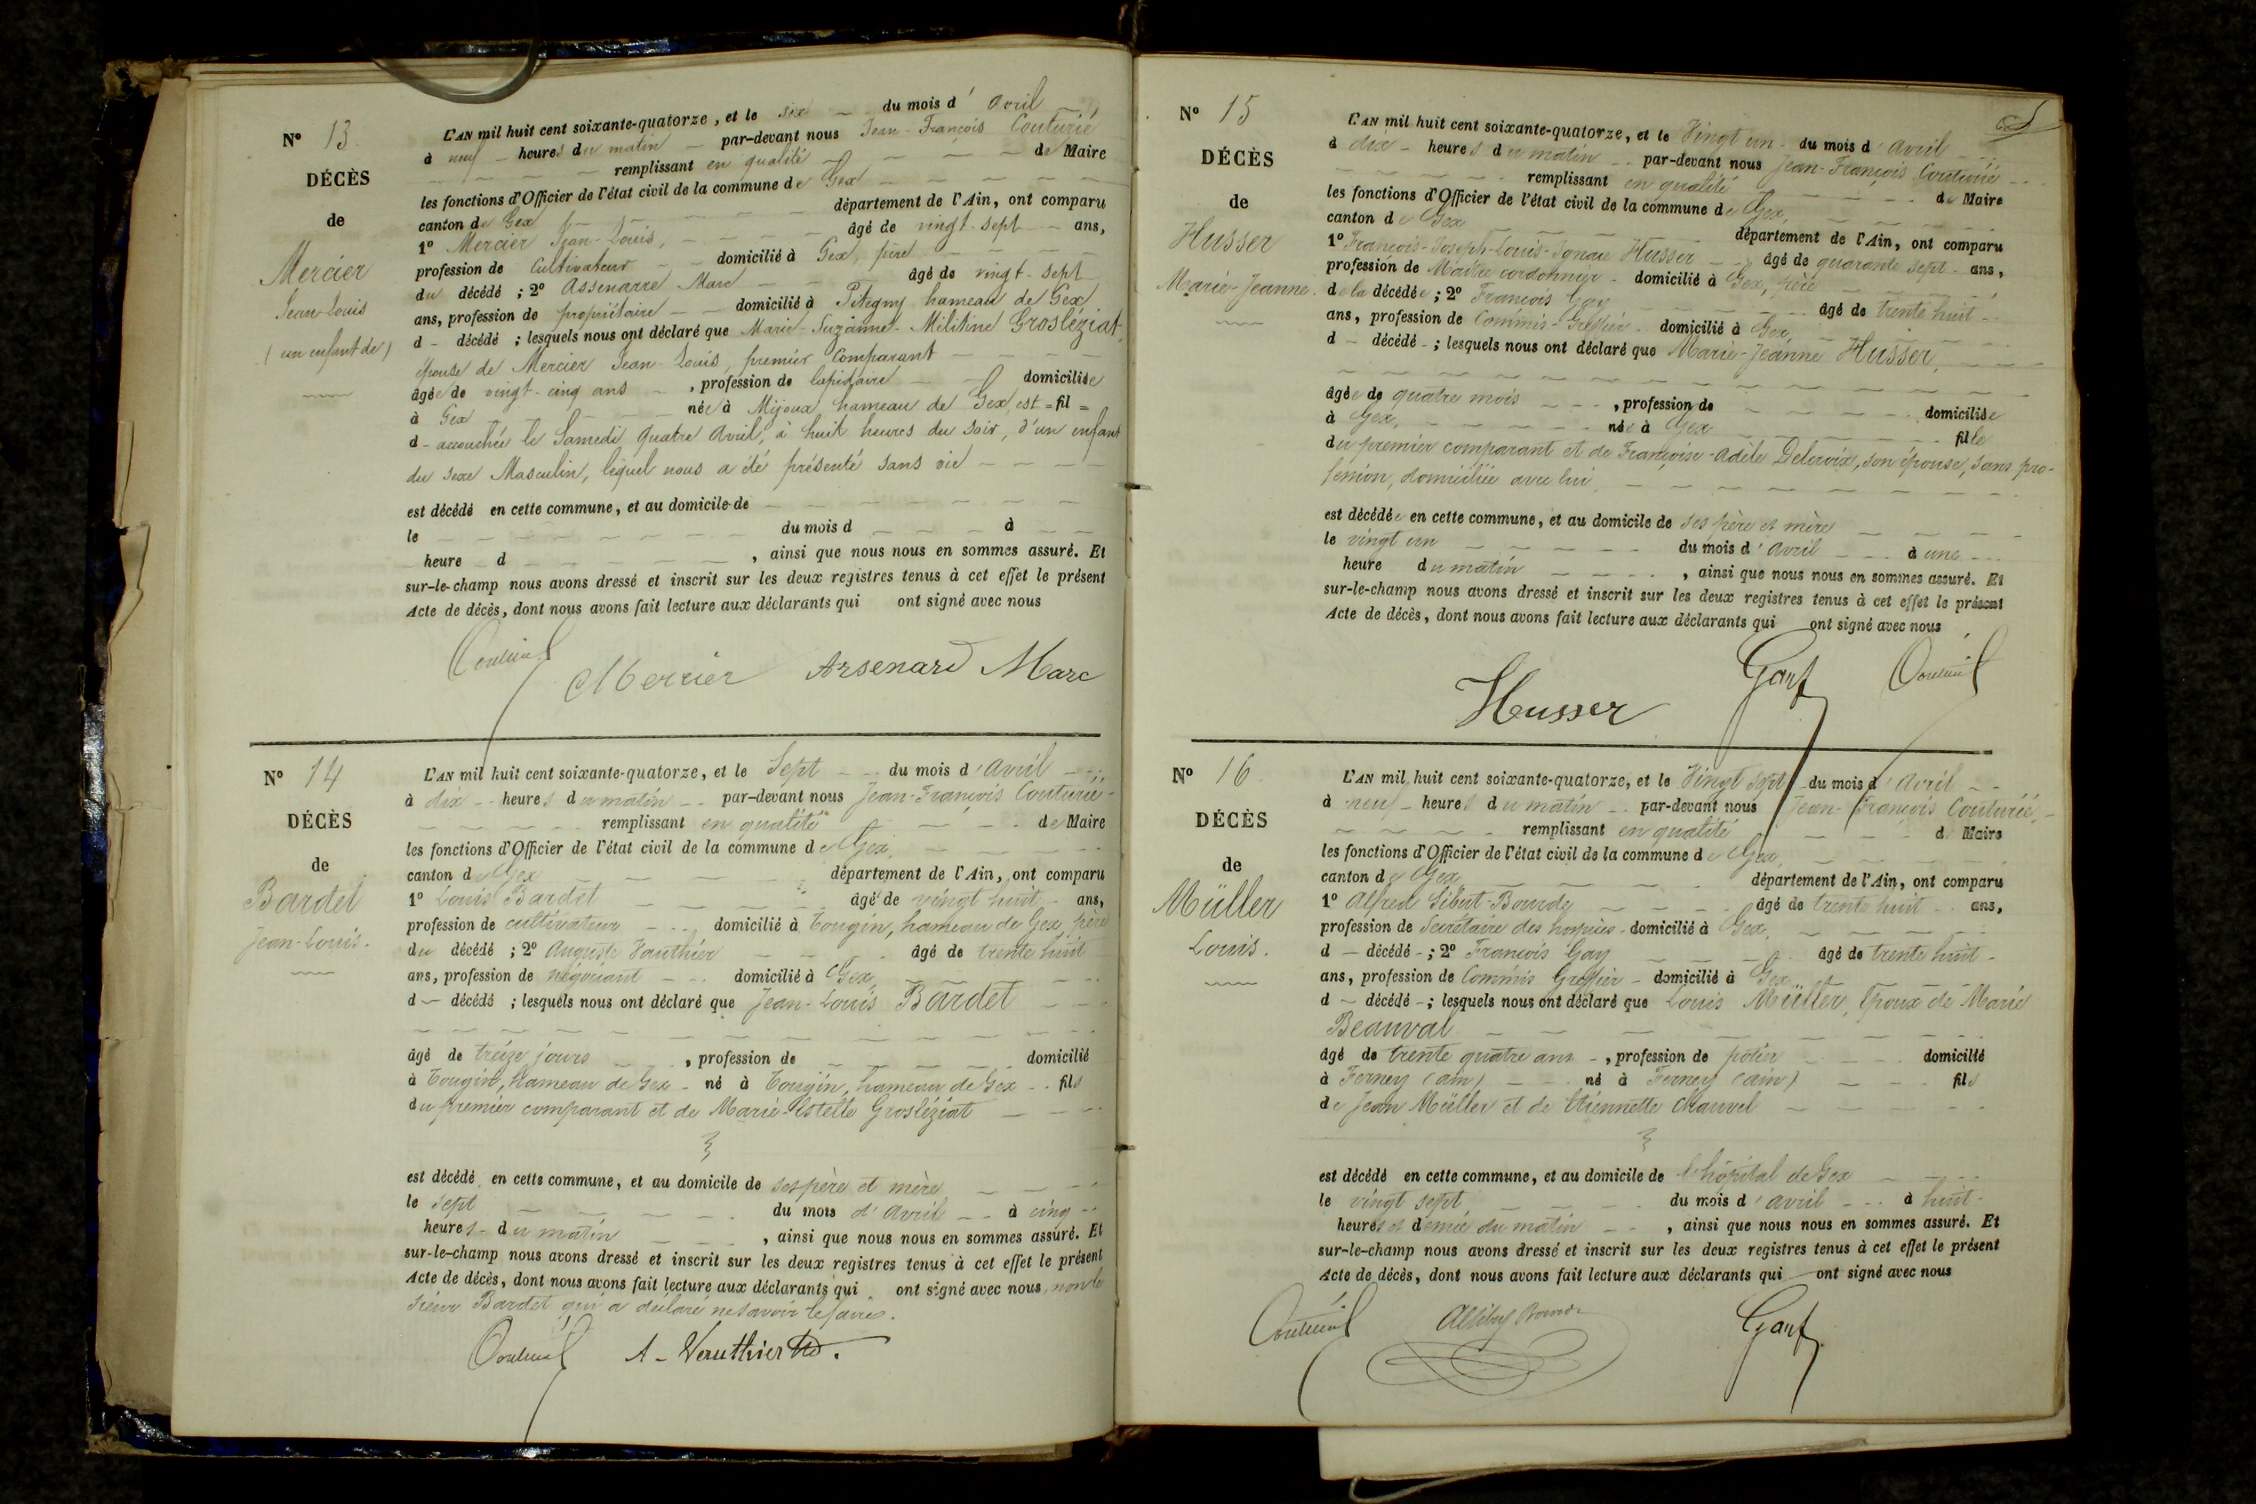 N° 13
DÉCÈS
de
Mercier
Jean-Louis
(un enfant de)
L'AN mil huit cent soixante-quatorze, et le six du mois d'avril
à neuf heures du matin par-devant nous Jean-François Couturié
remplissant en qualité de Maire
les fonctions d'Officier de l'état civil de la commune de Gex
canton de Gex département de l'Ain, ont comparu
1° Mercier Jean-Louis, âgé de vingt-sept ans,
profession de Cultivateur domicilié à Gex, père
du décédé ; 2° Assenarre Marc âgé de vingt-sept
ans, profession de propriétaire domicilié à Pitegny hameau de Gex
d décédé ; lesquels nous ont déclaré que Marie-Suzanne-Militine Grosléziat,
épouse de Mercier Jean-Louis, premier Comparant
âgée de vingt-cinq ans, profession de lapidaire domiciliée
à Gex née à Mijoux hameau de Gex, est = fil =
d accouchée le Samedi quatre Avril, à huit heures du soir, d'un enfant
du sexe Masculin, lequel nous a été présenté sans vie
est décédé en cette commune, et au domicile de
le du mois d à
heure d , ainsi que nous nous en sommes assuré. Et
sur-le-champ nous avons dressé et inscrit sur les deux registres tenus à cet effet le présent
Acte de décès, dont nous avons fait lecture aux déclarants qui ont signé avec nous
Couturié Mercier Arsenard Marc
N° 14
DÉCÈS
de
Bardet
Jean-Louis.
L'AN mil huit cent soixante-quatorze, et le Sept du mois d'avril
à dix heures du matin par-devant nous Jean-François Couturié
remplissant en qualité de Maire
les fonctions d'Officier de l'état civil de la commune de Gex,
canton de Gex département de l'Ain, ont comparu
1° Louis Bardet âgé de vingt huit ans,
profession de cultivateur domicilié à Tougin, hameau de Gex, père
du décédé ; 2° Auguste Vauthier âgé de trente huit
ans, profession de négociant domicilié à Gex,
d décédé ; lesquels nous ont déclaré que Jean-Louis Bardet
âgé de treize jours, profession de domicilié
à Tougin, hameau de Gex né à Tougin, hameau de Gex fils
du premier comparant et de Marie-Estelle Grosléziat
est décédé en cette commune, et au domicile de ses père et mère
le sept du mois d'avril à cinq
heures du matin, ainsi que nous nous en sommes assuré. Et
sur-le-champ nous avons dressé et inscrit sur les deux registres tenus à cet effet le présent
Acte de décès, dont nous avons fait lecture aux déclarants qui ont signé avec nous, non le
sieur Bardet qui a déclaré ne savoir le faire.
Couturié A. Vauthier
N° 15
DÉCÈS
de
Husser
Marie-Jeanne.
L'AN mil huit cent soixante-quatorze, et le Vingt un du mois d'avril
à dix heures du matin par-devant nous Jean-François Couturié
remplissant en qualité de Maire
les fonctions d'Officier de l'état civil de la commune de Gex,
canton de Gex département de l'Ain, ont comparu
1° François-Joseph-Louis-Ignace Husser âgé de quarante sept ans,
profession de Maître cordonnier domicilié à Gex, père
de la décédée ; 2° François Gay âgé de trente huit
ans, profession de Commis-Greffier domicilié à Gex,
d décédé ; lesquels nous ont déclaré que Marie-Jeanne Husser,
âgée de quatre mois, profession de domiciliée
à Gex, née à Gex fille
du premier comparant et de Françoise-Adèle Delcroix, son épouse, sans pro-
fession, domiciliée avec lui.
est décédée en cette commune, et au domicile de ses père et mère
le vingt un du mois d'avril à une
heure du matin, ainsi que nous nous en sommes assuré. Et
sur-le-champ nous avons dressé et inscrit sur les deux registres tenus à cet effet le présent
Acte de décès, dont nous avons fait lecture aux déclarants qui ont signé avec nous
Husser Gay Couturié
N° 16
DÉCÈS
de
Müller
Louis.
L'AN mil huit cent soixante-quatorze, et le Vingt sept du mois d'avril
à neuf heures du matin par-devant nous Jean-François Couturié,
remplissant en qualité d Maire
les fonctions d'Officier de l'état civil de la commune de Gex,
canton de Gex département de l'Ain, ont comparu
1° Alfred Sibut-Bourde âgé de trente huit ans,
profession de Secrétaire des hospices domicilié à Gex,
d décédé ; 2° François Gay âgé de trente huit
ans, profession de Commis Greffier domicilié à Gex
d décédé ; lesquels nous ont déclaré que Louis Müller, époux de Marie
Beauval
âgé de trente quatre ans, profession de potier domicilié
à Ferney (ain) né à Ferney (ain) fils
de Jean Müller et de Etiennette Chauvel
est décédé en cette commune, et au domicile de l'hôpital de Gex
le vingt sept du mois d'avril à huit
heures et demie du matin, ainsi que nous nous en sommes assuré. Et
sur-le-champ nous avons dressé et inscrit sur les deux registres tenus à cet effet le présent
Acte de décès, dont nous avons fait lecture aux déclarants qui ont signé avec nous
Couturié Gay